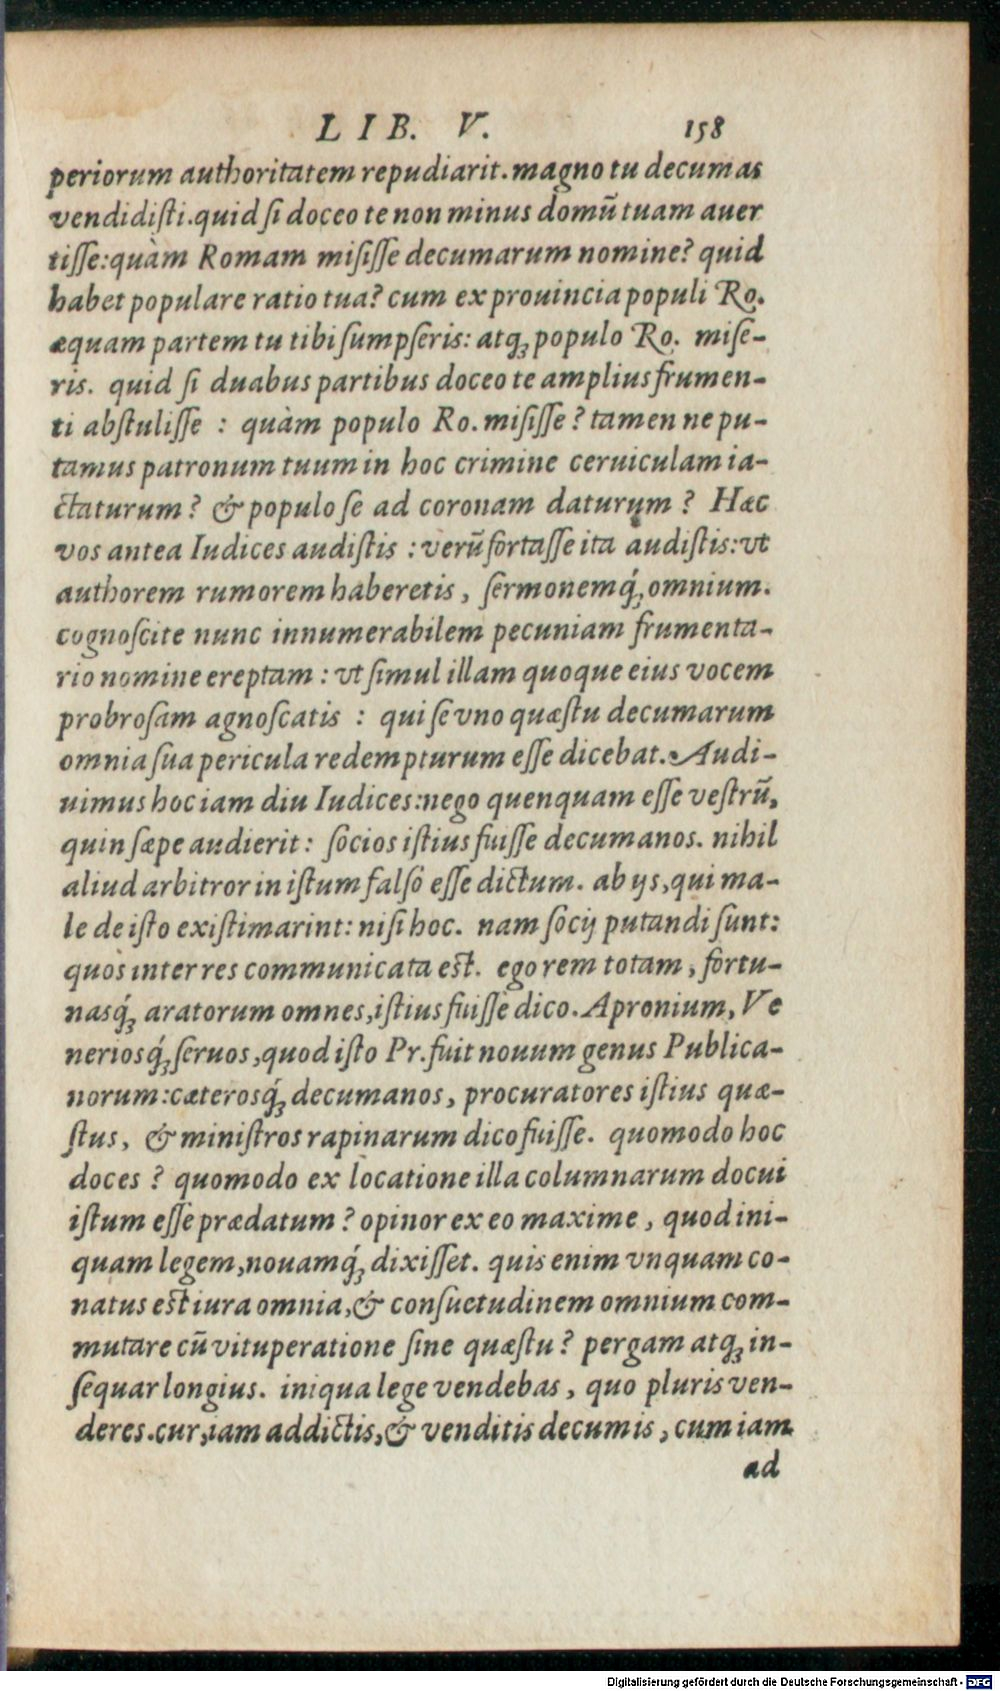 LIB. V. 158
periorum authoritatem repudiarit. magno tu decumas
vendidiſti. quid ſi doceo te non minus domū tuam auer
tiſſe: quàm Romam miſiſſe decumarum nomine? quid
habet populare ratio tua? cum ex prouincia populi Ro.
æquam partem tu tibi ſumpſeris: atqꝫ populo Ro. miſe-
ris. quid ſi duabus partibus doceo te amplius frumen-
ti abſtuliſſe : quàm populo Ro. miſiſſe? tamen ne pu-
tamus patronum tuum in hoc crimine ceruiculam ia-
ctaturum? & populo ſe ad coronam daturum? Hæc
vos antea Iudices audiſtis : verū fortaſſe ita audiſtis: vt
authorem rumorem haberetis, ſermonemq́ꝫ omnium.
cognoſcite nunc innumerabilem pecuniam frumenta-
rio nomine ereptam : vt ſimul illam quoque eius vocem
probroſam agnoſcatis : qui ſe vno quæſtu decumarum
omnia ſua pericula redempturum eſſe dicebat. Audi-
uimus hoc iam diu Iudices: nego quenquam eſſe veſtrū,
quin ſæpe audierit : ſocios iſtius fuiſſe decumanos. nihil
aliud arbitror in iſtum falſò eſſe dictum. ab ijs, qui ma-
le de iſto exiſtimarint: niſi hoc. nam ſocij putandi ſunt:
quos inter res communicata eſt. ego rem totam, fortu-
nasq́ꝫ aratorum omnes, iſtius fuiſſe dico. Apronium, Ve
neriosq́ꝫ ſeruos, quod iſto Pr. fuit nouum genus Publica-
norum: cæterosq́ꝫ decumanos, procuratores iſtius quæ-
ſtus, & miniſtros rapinarum dico fuiſſe. quomodo hoc
doces? quomodo ex locatione illa columnarum docui
iſtum eſſe prædatum? opinor ex eo maxime, quod ini-
quam legem, nouamq́ꝫ dixiſſet. quis enim vnquam co-
natus eſt iura omnia, & conſuetudinem omnium com-
mutare cū vituperatione ſine quæſtu? pergam atqꝫ in-
ſequar longius. iniqua lege vendebas, quo pluris ven-
deres. cur, iam addictis, & venditis decumis, cum iam
ad
Digitalisierung gefördert durch die Deutsche Forschungsgemeinschaft - DFG